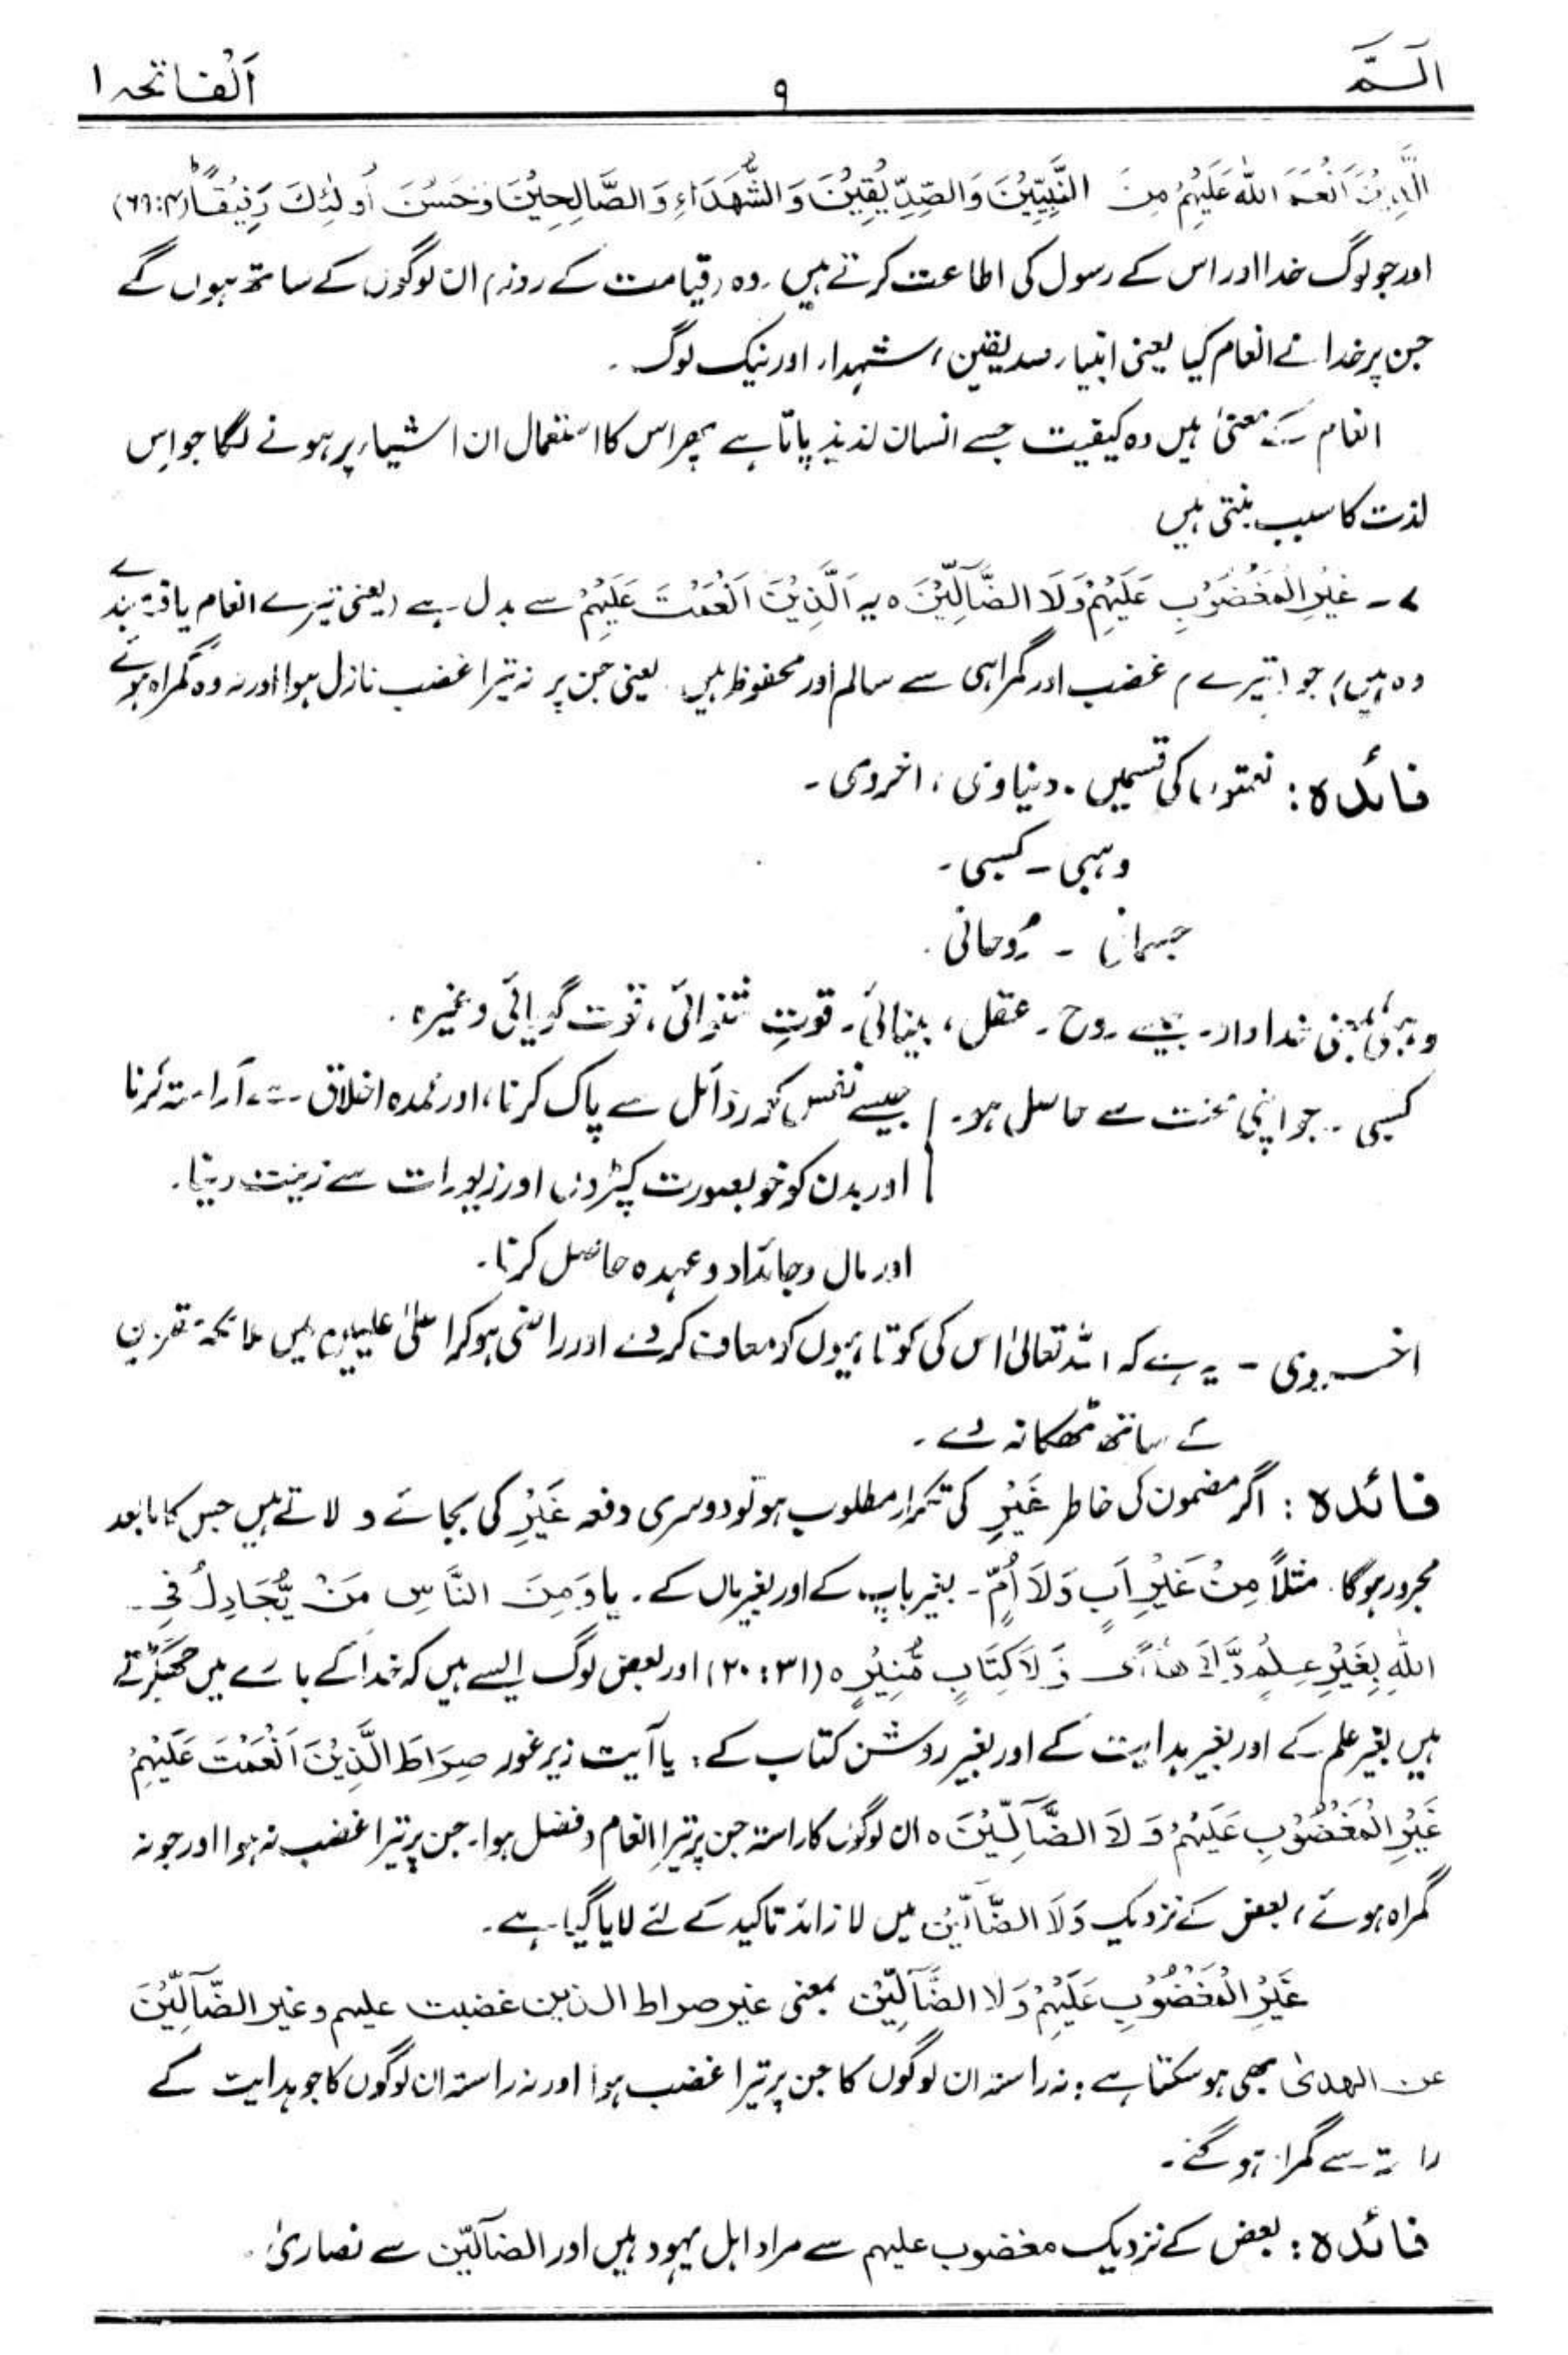 الٓمّٓ ۹ اَلْفَاتحہ ۱
الَّذِيْنَ اَنْعَمَ اللّٰهُ عَلَيْهِمْ مِنَ النَّبِيّٖنَ وَالصِّدِّيْقِيْنَ وَالشُّهَدَاۤءِ وَالصَّالِحِيْنَ وَحَسُنَ اُولٰۤئِكَ رَفِيْقًا ؕ (۴: ۶۹)
اور جو لوگ خدا اور اس کے رسول کی اطاعت کرتے ہیں ۔ وہ (قیامت کے روز) ان لوگوں کے ساتھ ہوں گے
جن پر خدا نے انعام کیا یعنی انبیاء، صدیقین، شہداء، اور نیک لوگ ۔
انعام کے معنی ہیں وہ کیفیت جسے انسان لذیذ پاتا ہے پھر اس کا استعمال ان اشیاء پر ہونے لگا جو اس
لذت کا سبب بنتی ہیں
۷۔ غَيْرِ الْمَغْضُوْبِ عَلَيْهِمْ وَلَا الضَّآلِّيْنَ ہ یہ اَلَّذِيْنَ اَنْعَمْتَ عَلَيْهِمْ سے بدل ہے (یعنی تیرے انعام یافتہ بندے
وہ ہیں) جو (تیرے) غضب اور گمراہی سے سالم اور محفوظ ہیں۔ یعنی جن پر نہ تیرا غضب نازل ہوا اور نہ وہ گمراہ ہوئے
فائدہ : نعمتوں کی قسمیں ۔ دنیاوی، اخروی ۔
وہبی ۔ کسبی ۔
جسمانی ۔ رُوحانی ۔
وہبی یعنی خداداد۔ جیسے روح ۔ عقل، بینائی۔ قوتِ شنوائی، قوت گویائی وغیرہ ۔
کسبی ۔ جو اپنی محنت سے حاصل ہو۔ جیسے نفس کو رذائل سے پاک کرنا، اور عمدہ اخلاق سے آراستہ کرنا
اور بدن کو خوبصورت کپڑوں اور زیورات سے زینت دینا۔
اور مال و جائداد و عہدہ حاصل کرنا ۔
اخروی ۔ یہ ہے کہ اللہ تعالیٰ اس کی کوتاہیوں کو معاف کر دے اور راضی ہو کر اعلیٰ علیین میں ملائکہ مقربین
کے ساتھ ٹھکانہ دے ۔
فائدہ : اگر مضمون کی خاطر غَيْرِ کی تکرار مطلوب ہو تو دوسری دفعہ غَيْرِ کی بجائے و لا تے ہیں جس کا مابعد
مجرور ہوگا ۔ مثلاً مِنْ غَيْرِ اَبٍ وَلَا اُمٍّ ۔ بغیر باپ کے اور بغیر ماں کے ۔ یا وَمِنَ النَّاسِ مَنْ يُّجَادِلُ فِي
اللّٰهِ بِغَيْرِ عِلْمٍ وَّلَا هُدًى وَّلَا كِتَابٍ مُّنِيْرٍ ہ (۳۱ : ۲۰) اور بعض لوگ ایسے ہیں کہ خدا کے بارے میں جھگڑتے
ہیں بغیر علم کے اور بغیر ہدایت کے اور بغیر روشن کتاب کے : یا آیت زیر غور صِرَاطَ الَّذِيْنَ اَنْعَمْتَ عَلَيْهِمْ
غَيْرِ الْمَغْضُوْبِ عَلَيْهِمْ وَلَا الضَّآلِّيْنَ ہ ان لوگوں کا راستہ جن پر تیرا انعام و فضل ہوا۔ جن پر تیرا غضب نہ ہوا اور جو نہ
گمراہ ہوئے، بعض کے نزدیک وَلَا الضَّآلِّيْنَ میں لا زائد تاکید کے لئے لایا گیا ہے ۔
غَيْرِ الْمَغْضُوْبِ عَلَيْهِمْ وَلَا الضَّآلِّيْنَ بمعنی غیر صراط الذین غضبت علیہم و غیر الضَّآلِّيْنَ
عن الھدیٰ بھی ہو سکتا ہے : نہ راستہ ان لوگوں کا جن پر تیرا غضب ہوا اور نہ راستہ ان لوگوں کا جو ہدایت کے
راستہ سے گمراہ ہو گئے ۔
فائدہ : بعض کے نزدیک مغضوب علیہم سے مراد اہل یہود ہیں اور الضآلّین سے نصاریٰ ۔